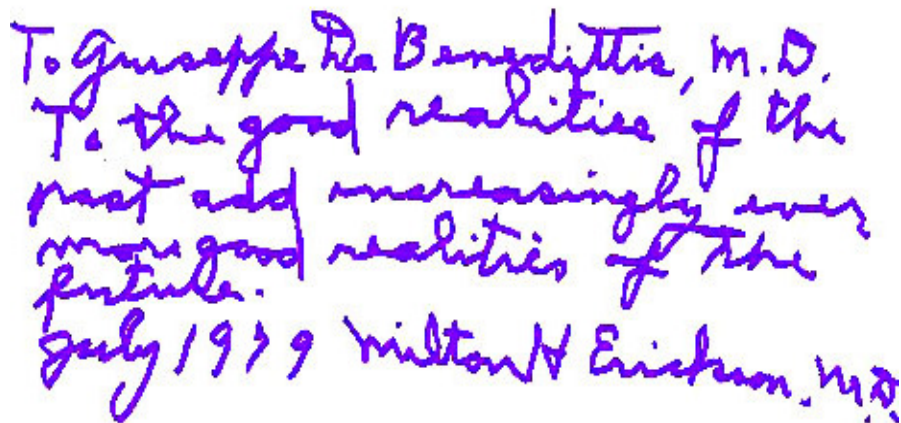 To Giuseppe De Benedittis, M.D.
To the good realities of the
past add increasingly ever
more good realities of the
future.
July 1979 Milton H Erickson, M.D.